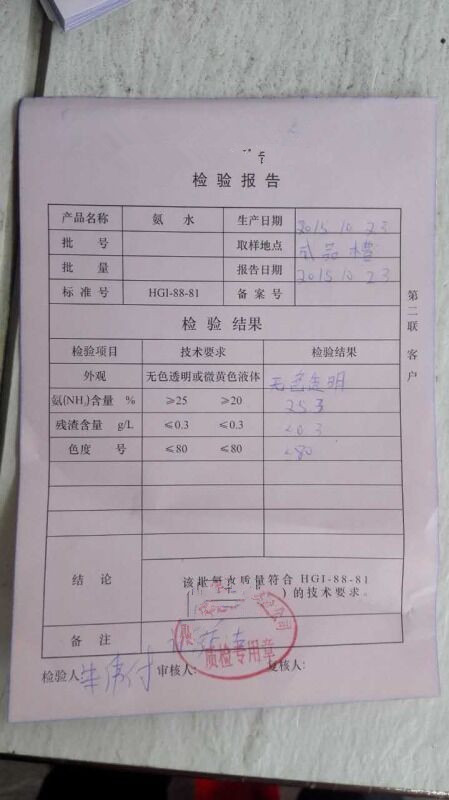 检验报告
产品名称 氨水 生产日期 2015 10 23
批号 取样地点 成品槽
批量 报告日期 2015 10 23
标准号 HGI-88-81 备案号
检验结果
检验项目 技术要求 检验结果
外观 无色透明或微黄色液体 无色透明
氨(NH₃)含量 % ≥25 ≥20 25.3
残渣含量 g/L ≤0.3 ≤0.3 <0.3
色度 号 ≤80 ≤80 <80
结论 该批氨水质量符合 HGI-88-81
( )的技术要求。
备注
质检专用章
检验人: 审核人: 复核人:
第二联 客户